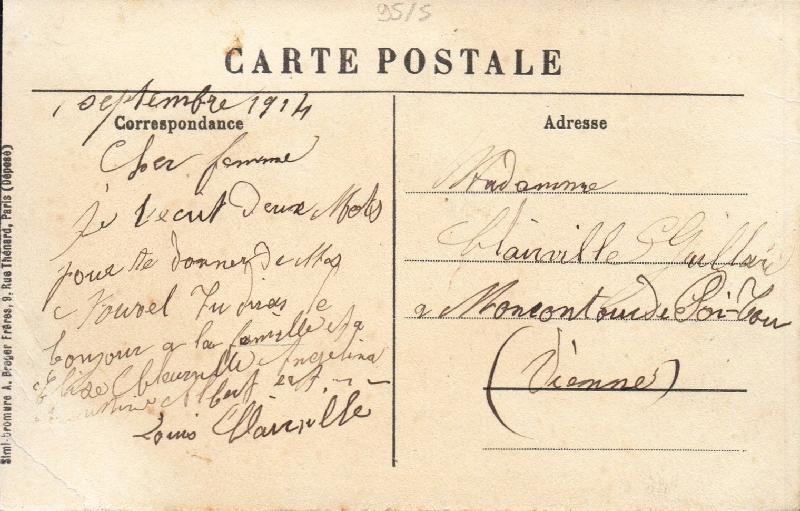 95/5
CARTE POSTALE
1 septembre 1914
Correspondance
Cher femme
Je t'ecrit deux Mots
pour te donner de Mes
Nouvel Tu diras le
bonjour a la famille
Clairville Angelina
Albert
Louis Clairville
Adresse
Madamme
Clairville
a Moncontour de Poitou
(Vienne)
Simi-bromure A. Breger Frères, 9, Rue Thénard, Paris (Déposé)